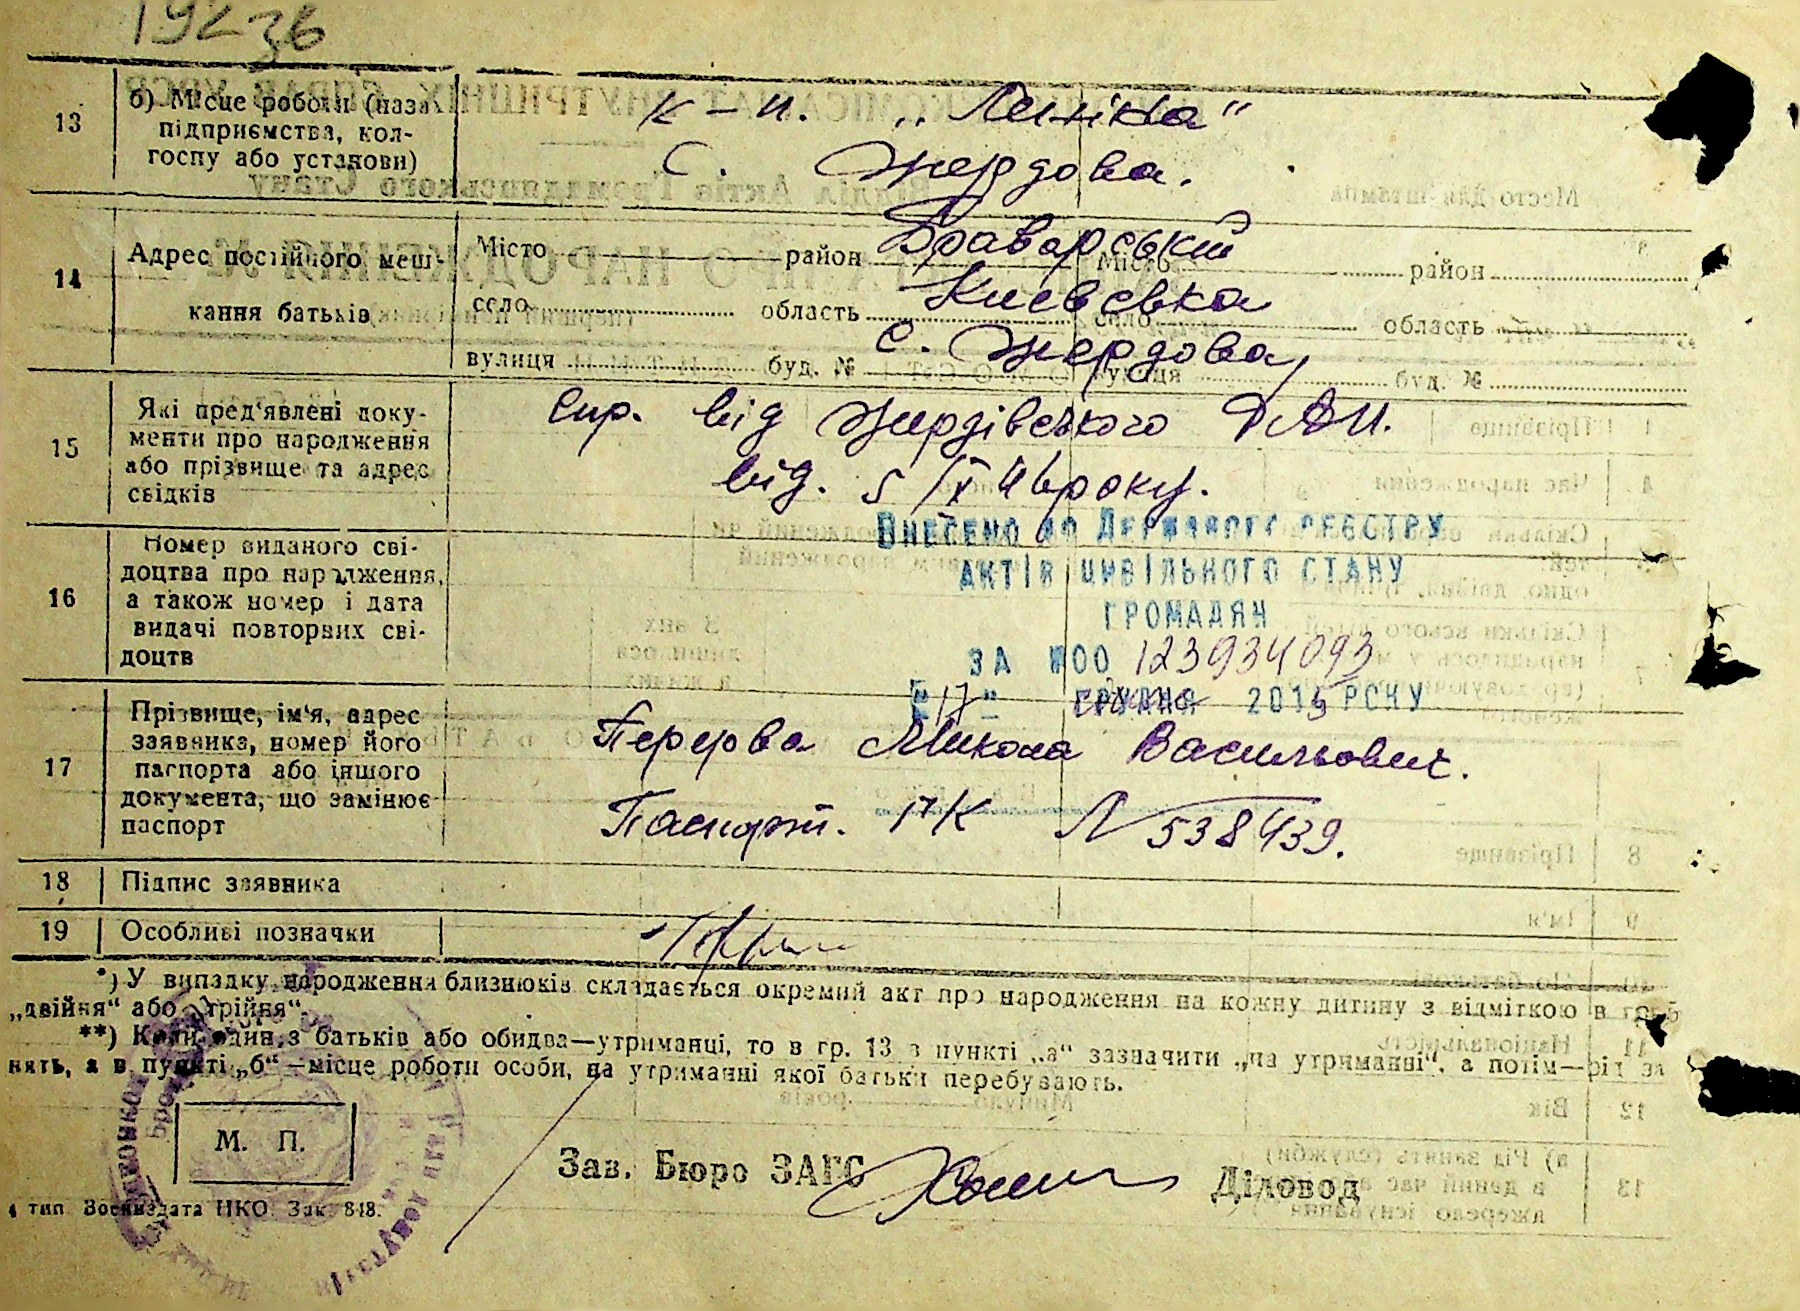 13 б) Місце роботи (назва підприємства, колгоспу або установи)
к-п. „Леніна"
с. Жердова.
14 Адрес постійного меш-
кання батьків
Місто район Браварський
село область Киевська
с. Жердова,
вулиця буд. №
Місто район
село область
вулиця буд. №
15 Які пред'явлені доку-
менти про народження
або прізвище та адрес
свідків
Спр. від Жердівського
від. 5/IX 46 року.
16 Номер виданого сві-
доцтва про народження,
а також номер і дата
видачі повторних сві-
доцтв
Внесено до Державного реєстру
актів цивільного стану
громадян
за №00 123934093
"17" грудня 2015 року
17 Прізвище, ім'я, адрес
заявника, номер його
паспорта або іншого
документа, що замінює
паспорт
Перерва Микола Васильович.
Паспорт. № 538439.
18 Підпис заявника
19 Особливі позначки
*) У випадку народження близнюків складається окремий акт про народження на кожну дитину з відміткою в
„двійня" або „трійня".
**) Коли один з батьків або обидва—утриманці, то в гр. 13 в пункті „а" зазначити „на утриманні", а потім—рід за
нять, а в пункті „б"—місце роботи особи, на утриманні якої батьки перебувають.
М. П.
Зав. Бюро ЗАГС
Діловод
4 тип. Воениздата НКО. Зак. 848.